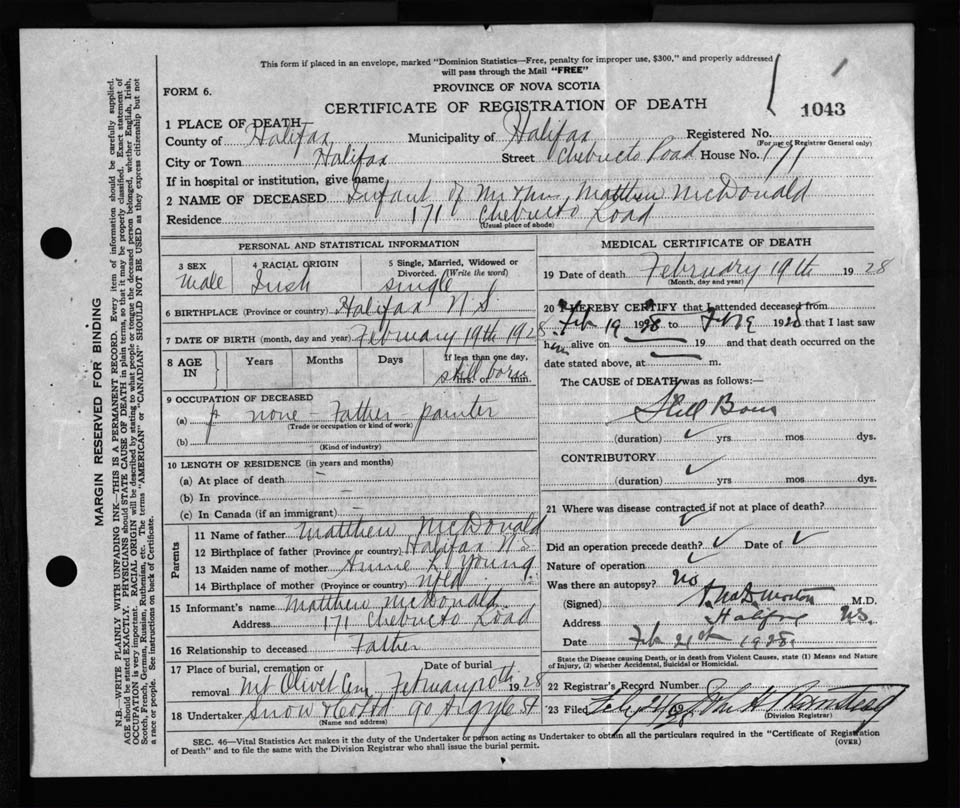 This form if placed in an envelope, marked "Dominion Statistics—Free, penalty for improper use, $300," and properly addressed
will pass through the Mail "FREE"
PROVINCE OF NOVA SCOTIA
FORM 6.
CERTIFICATE OF REGISTRATION OF DEATH
1043
1 PLACE OF DEATH
County of Halifax Municipality of Halifax Registered No.
(For use of Registrar General only)
City or Town Halifax Street Chebucto Road House No. 171
If in hospital or institution, give name
2 NAME OF DECEASED Infant of Mr & Mrs Matthew McDonald
Residence 171 Chebucto Road
(Usual place of abode)
PERSONAL AND STATISTICAL INFORMATION
3 SEX
Male
4 RACIAL ORIGIN
Irish
5 Single, Married, Widowed or
Divorced. (Write the word)
single
6 BIRTHPLACE (Province or country) Halifax N.S.
7 DATE OF BIRTH (month, day and year) February 19th 1928
8 AGE IN
Years Months Days
If less than one day,
still born
hrs. or min.
9 OCCUPATION OF DECEASED
(a) none - Father - painter
(Trade or occupation or kind of work)
(b)
(Kind of industry)
10 LENGTH OF RESIDENCE (in years and months)
(a) At place of death
(b) In province
(c) In Canada (if an immigrant)
Parents
11 Name of father Matthew McDonald
12 Birthplace of father (Province or country) Halifax N S
13 Maiden name of mother Annie L. Young
14 Birthplace of mother (Province or country) Nfld
15 Informant's name Matthew McDonald
Address 171 Chebucto Road
16 Relationship to deceased Father
17 Place of burial, cremation or removal Mt Olivet Cem
Date of burial February 20th 1928
18 Undertaker Snow & Co Ltd 90 Argyle St
(Name and address)
MEDICAL CERTIFICATE OF DEATH
19 Date of death February 19th 1928
(Month, day and year)
20 I HEREBY CERTIFY that I attended deceased from
Feb 19 1928 to 1928 that I last saw
him alive on 19 and that death occurred on the
date stated above, at m.
The CAUSE of DEATH was as follows:—
Still Born
(duration) yrs mos dys.
CONTRIBUTORY
(duration) yrs. mos. dys.
21 Where was disease contracted if not at place of death?
Did an operation precede death? Date of
Nature of operation
Was there an autopsy? No
(Signed) Morton M.D.
Address Halifax N.S.
Date Feb 21st 1928
State the Disease causing Death, or in death from Violent Causes, state (1) Means and Nature
of Injury, (2) whether Accidental, Suicidal or Homicidal.
22 Registrar's Record Number
23 Filed
(Division Registrar)
SEC. 46—Vital Statistics Act makes it the duty of the Undertaker or person acting as Undertaker to obtain all the particulars required in the "Certificate of Registration
of Death" and to file the same with the Division Registrar who shall issue the burial permit.
(OVER)
MARGIN RESERVED FOR BINDING
N.B.—WRITE PLAINLY, WITH UNFADING INK—THIS IS A PERMANENT RECORD. Every item of information should be carefully supplied.
AGE should be stated EXACTLY. PHYSICIANS should STATE CAUSE OF DEATH in plain terms, so that it may be properly classified. Exact statement of
OCCUPATION is very important. RACIAL ORIGIN will be described by stating to what people or tongue the deceased person belonged, whether English, Irish,
Scotch, French, German, Russian, Ruthenian, etc. The terms "AMERICAN" or "CANADIAN" SHOULD NOT BE USED as they express citizenship but not
a race or people. See instructions on back of Certificate.